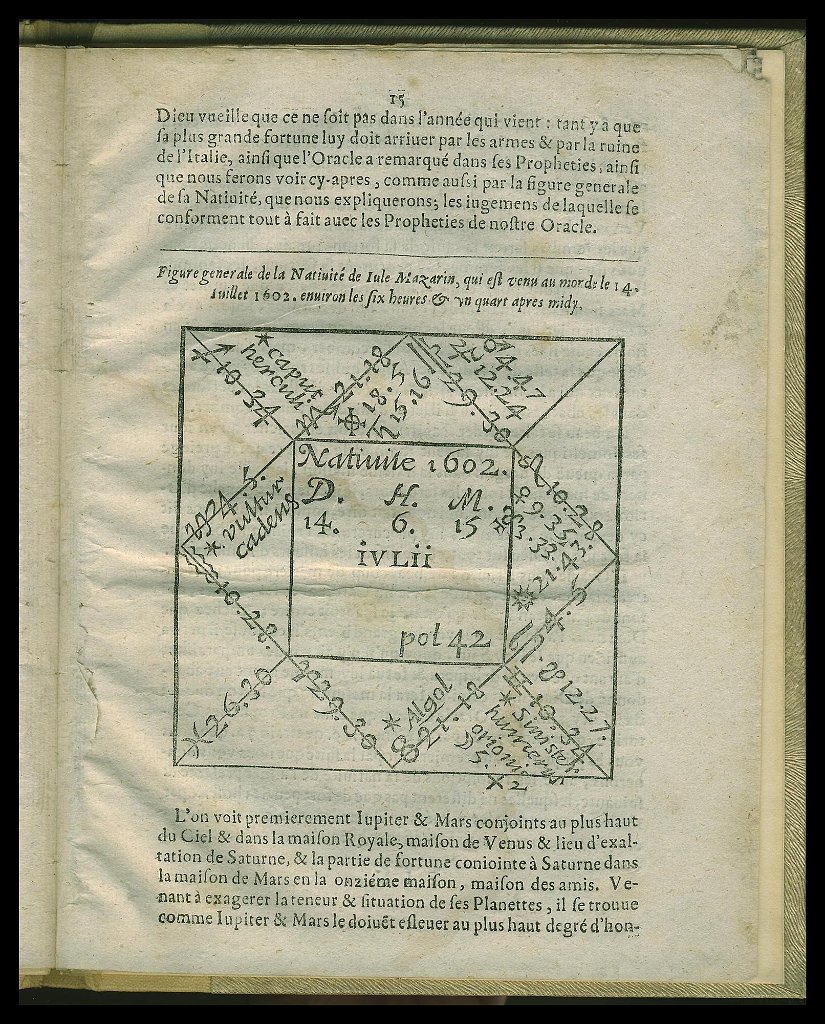 15
Dieu vueille que ce ne ſoit pas dans l'année qui vient : tant y a que
ſa plus grande fortune luy doit arriuer par les armes & par la ruine
de l'Italie, ainſi que l'Oracle a remarqué dans ſes Propheties, ainſi
que nous ferons voir cy-apres, comme auſsi par la figure generale
de ſa Natiuité, que nous expliquerons; les iugemens de laquelle ſe
conforment tout à fait auec les Propheties de noſtre Oracle.
Figure generale de la Natiuité de Iule Mazarin, qui eſt venu au monde le 14.
Iuillet 1602. enuiron les ſix heures & vn quart apres midy.
♐ 10.34
* caput
herculi
♏ 21.18
⊕ 18.5
♄ 15.16
♎ 29.30
♂ 4.47
♃ 12.24
♌ 10.28
♀ 9.35
☿ 3.33
☉ 21.43
♑ 4.5
* vultur
cadens
Natiuite 1602.
D. H. M.
14. 6. 15
iVLii
pol 42
♒ 10.28
♓ 26.30
♈ 29.30
* Algol
♉ 21.18
♋ 4.5
☋ 12.27.
♊ 10.34
* Sinister
humerus
orionis
☽ 5.
L'on voit premierement Iupiter & Mars conjoints au plus haut
du Ciel & dans la maiſon Royale, maiſon de Venus & lieu d'exal-
tation de Saturne, & la partie de fortune coniointe à Saturne dans
la maiſon de Mars en la onziéme maiſon, maiſon des amis. Ve-
nant à exagerer la teneur & ſituation de ſes Planettes, il ſe trouue
comme Iupiter & Mars le doiuẽt eſleuer au plus haut degré d'hon-